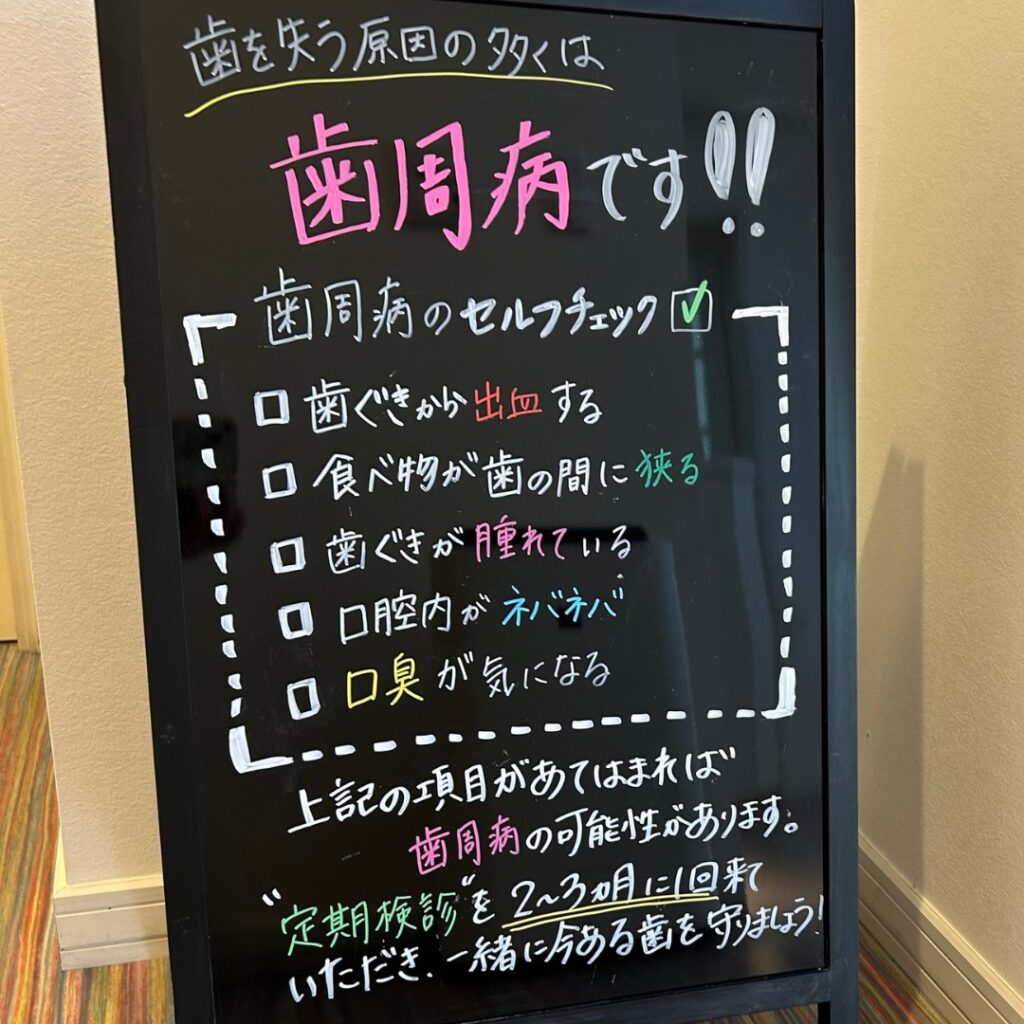 歯を失う原因の多くは
歯周病です!!
歯周病のセルフチェック☑
□ 歯ぐきから出血する
□ 食べ物が歯の間に狭る
□ 歯ぐきが腫れている
□ 口腔内がネバネバ
□ 口臭が気になる
上記の項目があてはまれば
歯周病の可能性があります。
"定期検診"を2〜3ヵ月に1回来て
いただき、一緒に今ある歯を守りましょう!